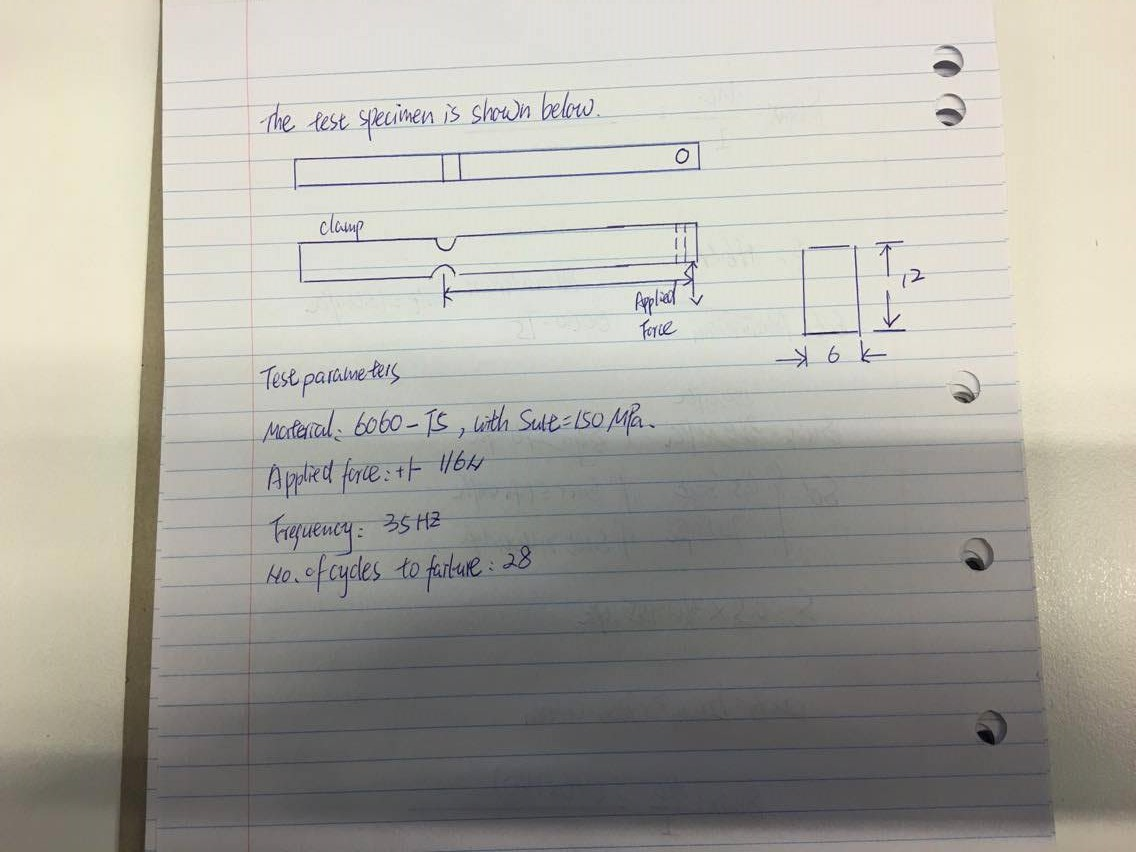 The test specimen is shown below.
clamp
Applied
Force
12
6
Test parameters
Material: 6060-T5, with Sult=150 MPa.
Applied force: +/- 116N
Frequency: 35HZ
No. of cycles to failure: 28